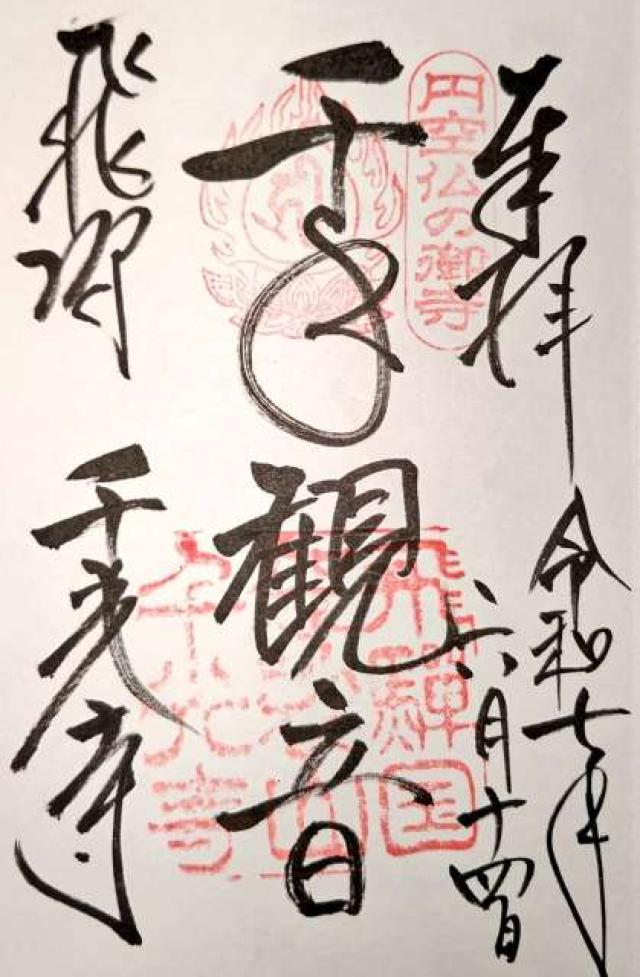 奉拝 令和七年
六月十四日
円空仏の御寺
千手観音
飛騨国
千光寺
飛騨 千光寺